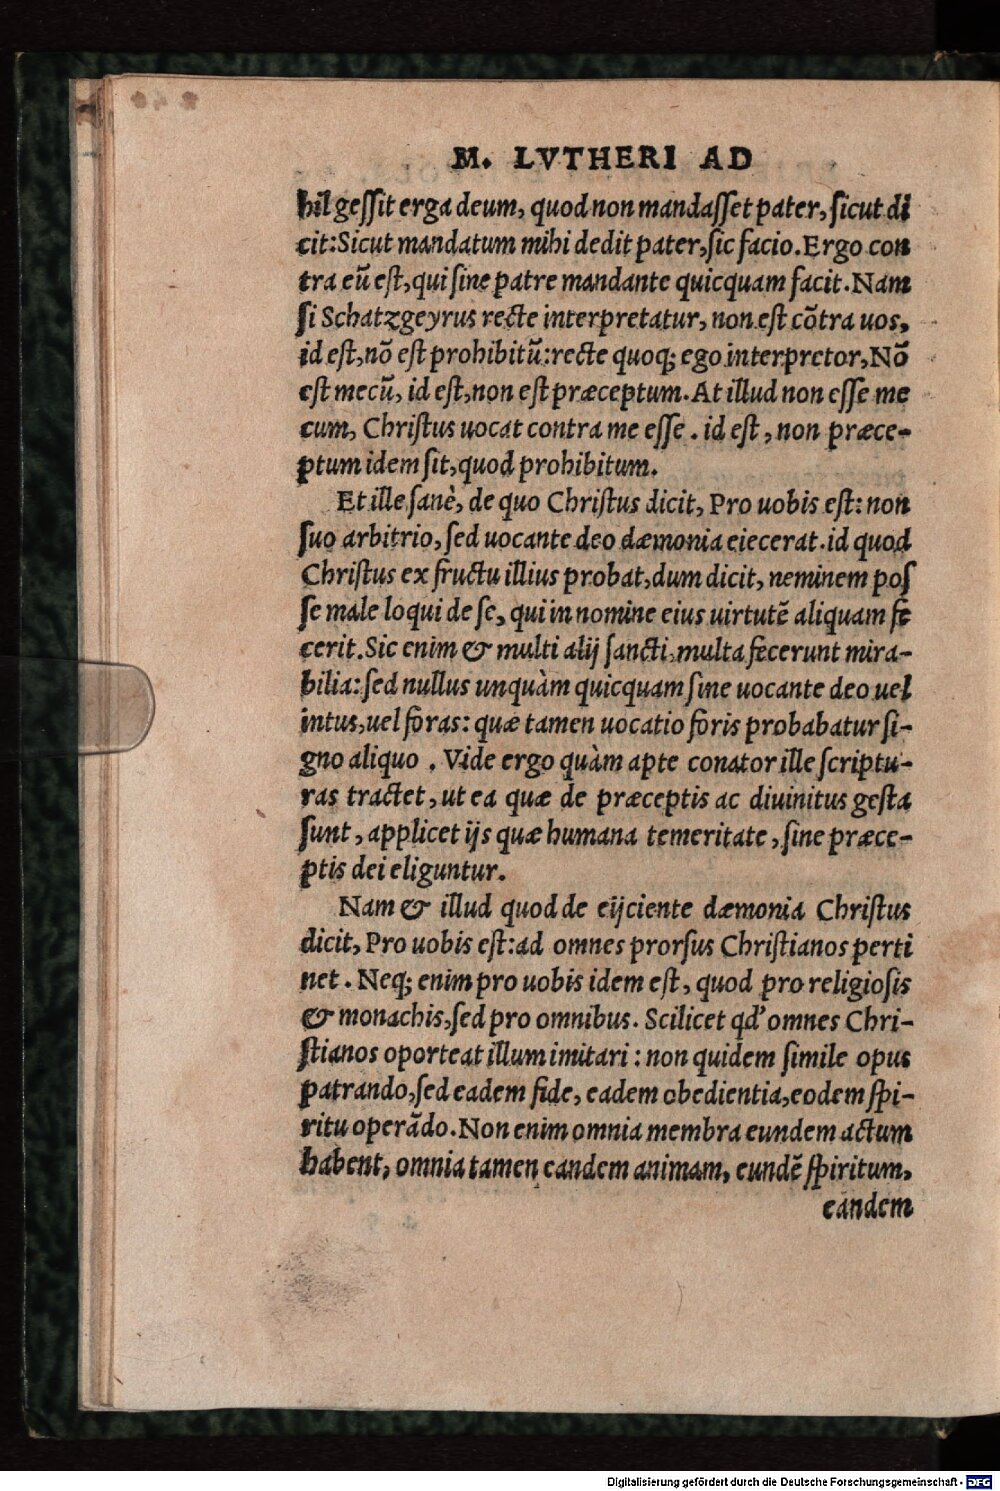 M. LVTHERI AD
hil geſſit erga deum, quod non mandaſſet pater, ſicut di
cit: Sicut mandatum mihi dedit pater, ſic facio. Ergo con
tra eũ eſt, qui ſine patre mandante quicquam facit. Nam
ſi Schatzgeyrus recte interpretatur, non eſt cõtra uos,
id eſt, nõ eſt prohibitũ: recte quoq; ego interpretor, Nõ
eſt mecũ, id eſt, non eſt præceptum. At illud non eſſe me
cum, Chriſtus uocat contra me eſſe . id eſt , non præce-
ptum idem ſit, quod prohibitum.
Et ille ſanè, de quo Chriſtus dicit, Pro uobis eſt: non
ſuo arbitrio, ſed uocante deo dæmonia eiecerat. id quod
Chriſtus ex fructu illius probat, dum dicit, neminem poſ
ſe male loqui de ſe, qui in nomine eius uirtutẽ aliquam fe
cerit. Sic enim & multi alij ſancti, multa fecerunt mira-
bilia: ſed nullus unquàm quicquam ſine uocante deo uel
intus, uel foras: quæ tamen uocatio foris probabatur ſi-
gno aliquo . Vide ergo quàm apte conator ille ſcriptu-
ras tractet, ut ea quæ de præceptis ac diuinitus geſta
ſunt , applicet ijs quæ humana temeritate , ſine præce-
ptis dei eliguntur.
Nam & illud quod de eijciente dæmonia Chriſtus
dicit, Pro uobis eſt: ad omnes prorſus Chriſtianos perti
net . Neq; enim pro uobis idem eſt, quod pro religioſis
& monachis, ſed pro omnibus. Scilicet qđ omnes Chri-
ſtianos oporteat illum imitari : non quidem ſimile opus
patrando, ſed eadem fide, eadem obedientia, eodem ſpi-
ritu operãdo. Non enim omnia membra eundem actum
habent, omnia tamen eandem animam, eundẽ ſpiritum,
eandem
Digitalisierung gefördert durch die Deutsche Forschungsgemeinschaft - DFG